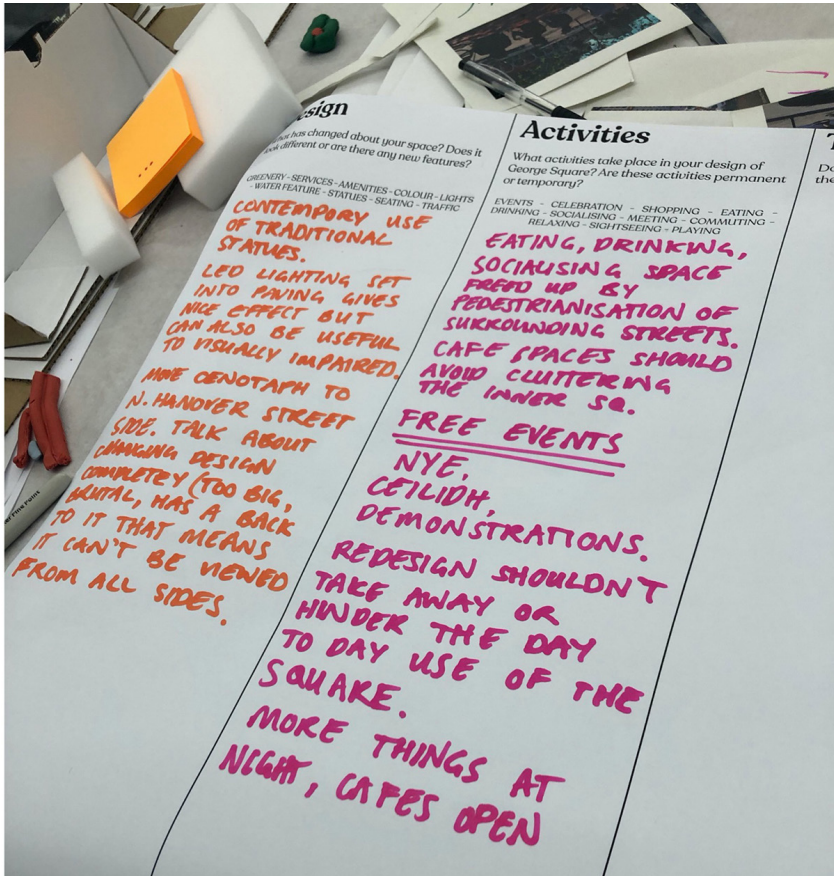 esign
hat has changed about your space? Does it
ook different or are there any new features?
GREENERY - SERVICES - AMENITIES - COLOUR - LIGHTS
- WATER FEATURE - STATUES - SEATING - TRAFFIC
CONTEMPORY USE
OF TRADITIONAL
STATUES.
LED LIGHTING SET
INTO PAVING GIVES
NICE EFFECT BUT
CAN ALSO BE USEFUL
TO VISUALLY IMPAIRED.
MOVE CENOTAPH TO
N. HANOVER STREET
SIDE. TALK ABOUT
CHANGING DESIGN
COMPLETELY (TOO BIG,
BRUTAL, HAS A BACK
TO IT THAT MEANS
IT CAN'T BE VIEWED
FROM ALL SIDES.
Activities
What activities take place in your design of
George Square? Are these activities permanent
or temporary?
EVENTS - CELEBRATION - SHOPPING - EATING -
DRINKING - SOCIALISING - MEETING - COMMUTING -
RELAXING - SIGHTSEEING - PLAYING
EATING, DRINKING,
SOCIALISING SPACE
FREED UP BY
PEDESTRIANISATION OF
SURROUNDING STREETS.
CAFE SPACES SHOULD
AVOID CLUTTERING
THE INNER SQ.
FREE EVENTS
NYE,
CEILIDH,
DEMONSTRATIONS.
REDESIGN SHOULDN'T
TAKE AWAY OR
HINDER THE DAY
TO DAY USE OF THE
SQUARE.
MORE THINGS AT
NIGHT, CAFES OPEN
Do
the